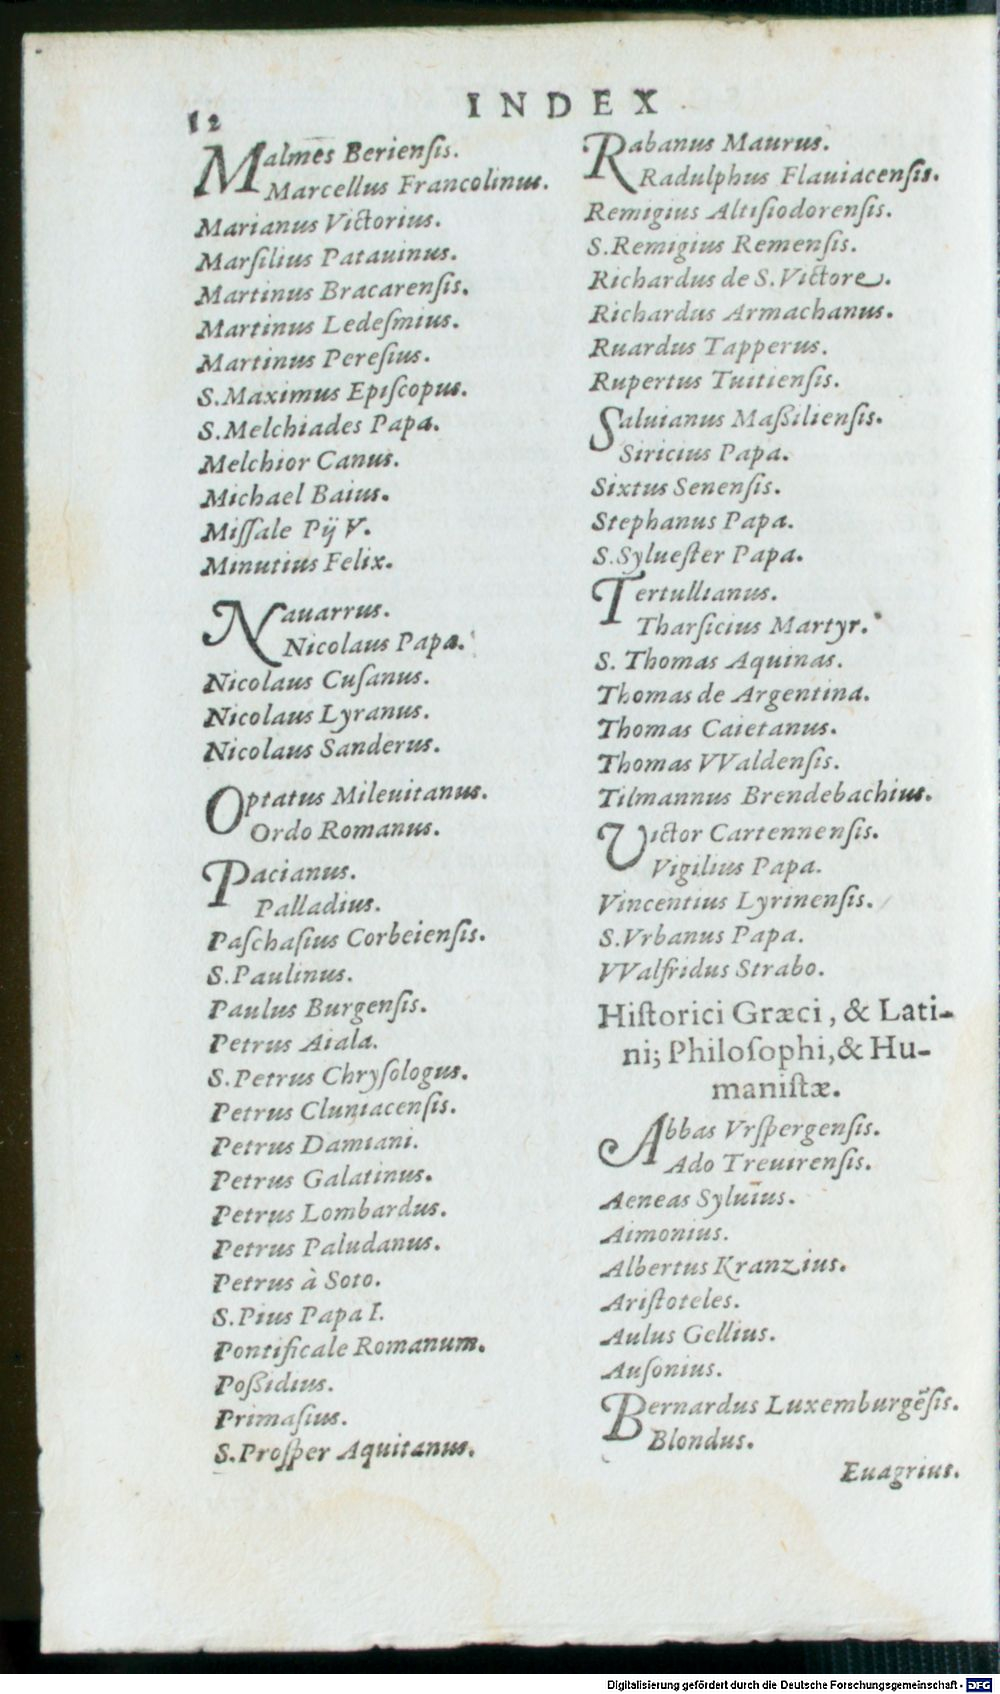 12
INDEX
Malmēs Berienſis.
Marcellus Francolinus.
Marianus Victorius.
Marſilius Patauinus.
Martinus Bracarenſis.
Martinus Ledeſmius.
Martinus Pereſius.
S.Maximus Epiſcopus.
S.Melchiades Papa.
Melchior Canus.
Michael Baius.
Miſſale Pij V.
Minutius Felix.
Nauarrus.
Nicolaus Papa.
Nicolaus Cuſanus.
Nicolaus Lyranus.
Nicolaus Sanderus.
Optatus Mileuitanus.
Ordo Romanus.
Pacianus.
Palladius.
Paſchaſius Corbeienſis.
S.Paulinus.
Paulus Burgenſis.
Petrus Aiala.
S.Petrus Chryſologus.
Petrus Cluniacenſis.
Petrus Damiani.
Petrus Galatinus.
Petrus Lombardus.
Petrus Paludanus.
Petrus à Soto.
S.Pius Papa I.
Pontificale Romanum.
Poßidius.
Primaſius.
S.Proſper Aquitanus.
Rabanus Maurus.
Radulphus Flauiacenſis.
Remigius Altiſiodorenſis.
S.Remigius Remenſis.
Richardus de S.Victore.
Richardus Armachanus.
Ruardus Tapperus.
Rupertus Tuitienſis.
Saluianus Maßilienſis.
Siricius Papa.
Sixtus Senenſis.
Stephanus Papa.
S.Sylueſter Papa.
Tertullianus.
Tharſicius Martyr.
S. Thomas Aquinas.
Thomas de Argentina.
Thomas Caietanus.
Thomas VValdenſis.
Tilmannus Brendebachius.
Victor Cartennenſis.
Vigilius Papa.
Vincentius Lyrinenſis.
S.Vrbanus Papa.
VValfridus Strabo.
Hiſtorici Græci, & Lati-
ni; Philoſophi,& Hu-
maniſtæ.
Abbas Vrſpergenſis.
Ado Treuirenſis.
Aeneas Syluius.
Aimonius.
Albertus Kranzius.
Ariſtoteles.
Aulus Gellius.
Auſonius.
Bernardus Luxemburgēſis.
Blondus.
Euagrius.
Digitalisierung gefördert durch die Deutsche Forschungsgemeinschaft - DFG